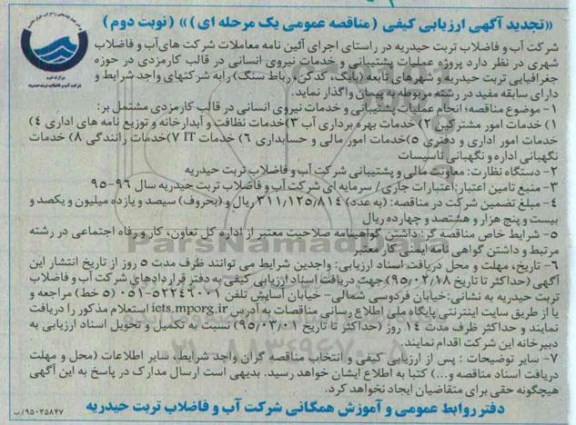 «تجدید آگهی ارزیابی کیفی (مناقصه عمومی یک مرحله ای)» (نوبت دوم)
شرکت آب و فاضلاب تربت حیدریه در راستای اجرای آئین نامه معاملات شرکت های آب و فاضلاب
شهری در نظر دارد پروژه عملیات پشتیبانی و خدمات نیروی انسانی در قالب کارمزدی در حوزه
جغرافیایی تربت حیدریه و شهرهای تابعه (بایگ، کدکن، رباط سنگ) رابه شرکتهای واجد شرایط و
دارای سابقه مفید در رشته مربوطه به پیمان واگذار نماید.
۱- موضوع مناقصه: انجام عملیات پشتیبانی و خدمات نیروی انسانی در قالب کارمزدی مشتمل بر:
۱) خدمات امور مشترکین ۲) خدمات بهره برداری آب ۳) خدمات نظافت و آبدارخانه و توزیع نامه های اداری ۴)
خدمات امور اداری و دفتری ۵) خدمات امور مالی و حسابداری ۶) خدمات IT ۷) خدمات رانندگی ۸) خدمات
نگهبانی اداره و نگهبانی تاسیسات
۲- دستگاه نظارت: معاونت مالی و پشتیبانی شرکت آب و فاضلاب تربت حیدریه
۳- منبع تامین اعتبار: اعتبارات جاری/ سرمایه ای شرکت آب و فاضلاب تربت حیدریه سال ۹۶-۹۵
۴- مبلغ تضمین شرکت در مناقصه: (به عدد) ۳۱۱/۱۲۵/۸۱۴ ریال و (بحروف) سیصد و یازده میلیون و یکصد و
بیست و پنج هزار و هشتصد و چهارده ریال
۵- شرایط خاص مناقصه گر: داشتن گواهینامه صلاحیت معتبر از اداره کل تعاون، کار و رفاه اجتماعی در رشته
مرتبط و داشتن گواهی نامه ایمنی کار معتبر
۶- تاریخ، مهلت و محل دریافت اسناد ارزیابی: واجدین شرایط می توانند ظرف مدت ۵ روز از تاریخ انتشار این
آگهی (حداکثر تا تاریخ ۹۵/۰۲/۱۸) جهت دریافت اسناد ارزیابی کیفی به دفتر قراردادهای شرکت آب و فاضلاب
تربت حیدریه به نشانی: خیابان فردوسی شمالی- خیابان آسایش تلفن ۵۲۲۴۶۰۰۱-۰۵۱ (۵ خط) مراجعه و
یا از طریق سایت اینترنتی پایگاه ملی اطلاع رسانی مناقصات به آدرس iets.mporg.ir استعلام مذکور را دریافت
نمایند و حداکثر ظرف مدت ۱۴ روز (حداکثر تا تاریخ ۹۵/۰۳/۰۱) نسبت به تکمیل و تحویل اسناد ارزیابی به
دبیرخانه این شرکت اقدام نمایند.
۷- سایر توضیحات : پس از ارزیابی کیفی و انتخاب مناقصه گران واجد شرایط، سایر اطلاعات (محل و مهلت
دریافت اسناد مناقصه و...) کتبا به اطلاع ایشان خواهد رسید. بدیهی است ارسال مدارک در پاسخ به این آگهی
هیچگونه حقی برای متقاضیان ایجاد نخواهد کرد.
دفتر روابط عمومی و آموزش همگانی شرکت آب و فاضلاب تربت حیدریه
۹۵۰۲۵۸۴۷/ب
ParsNamadData